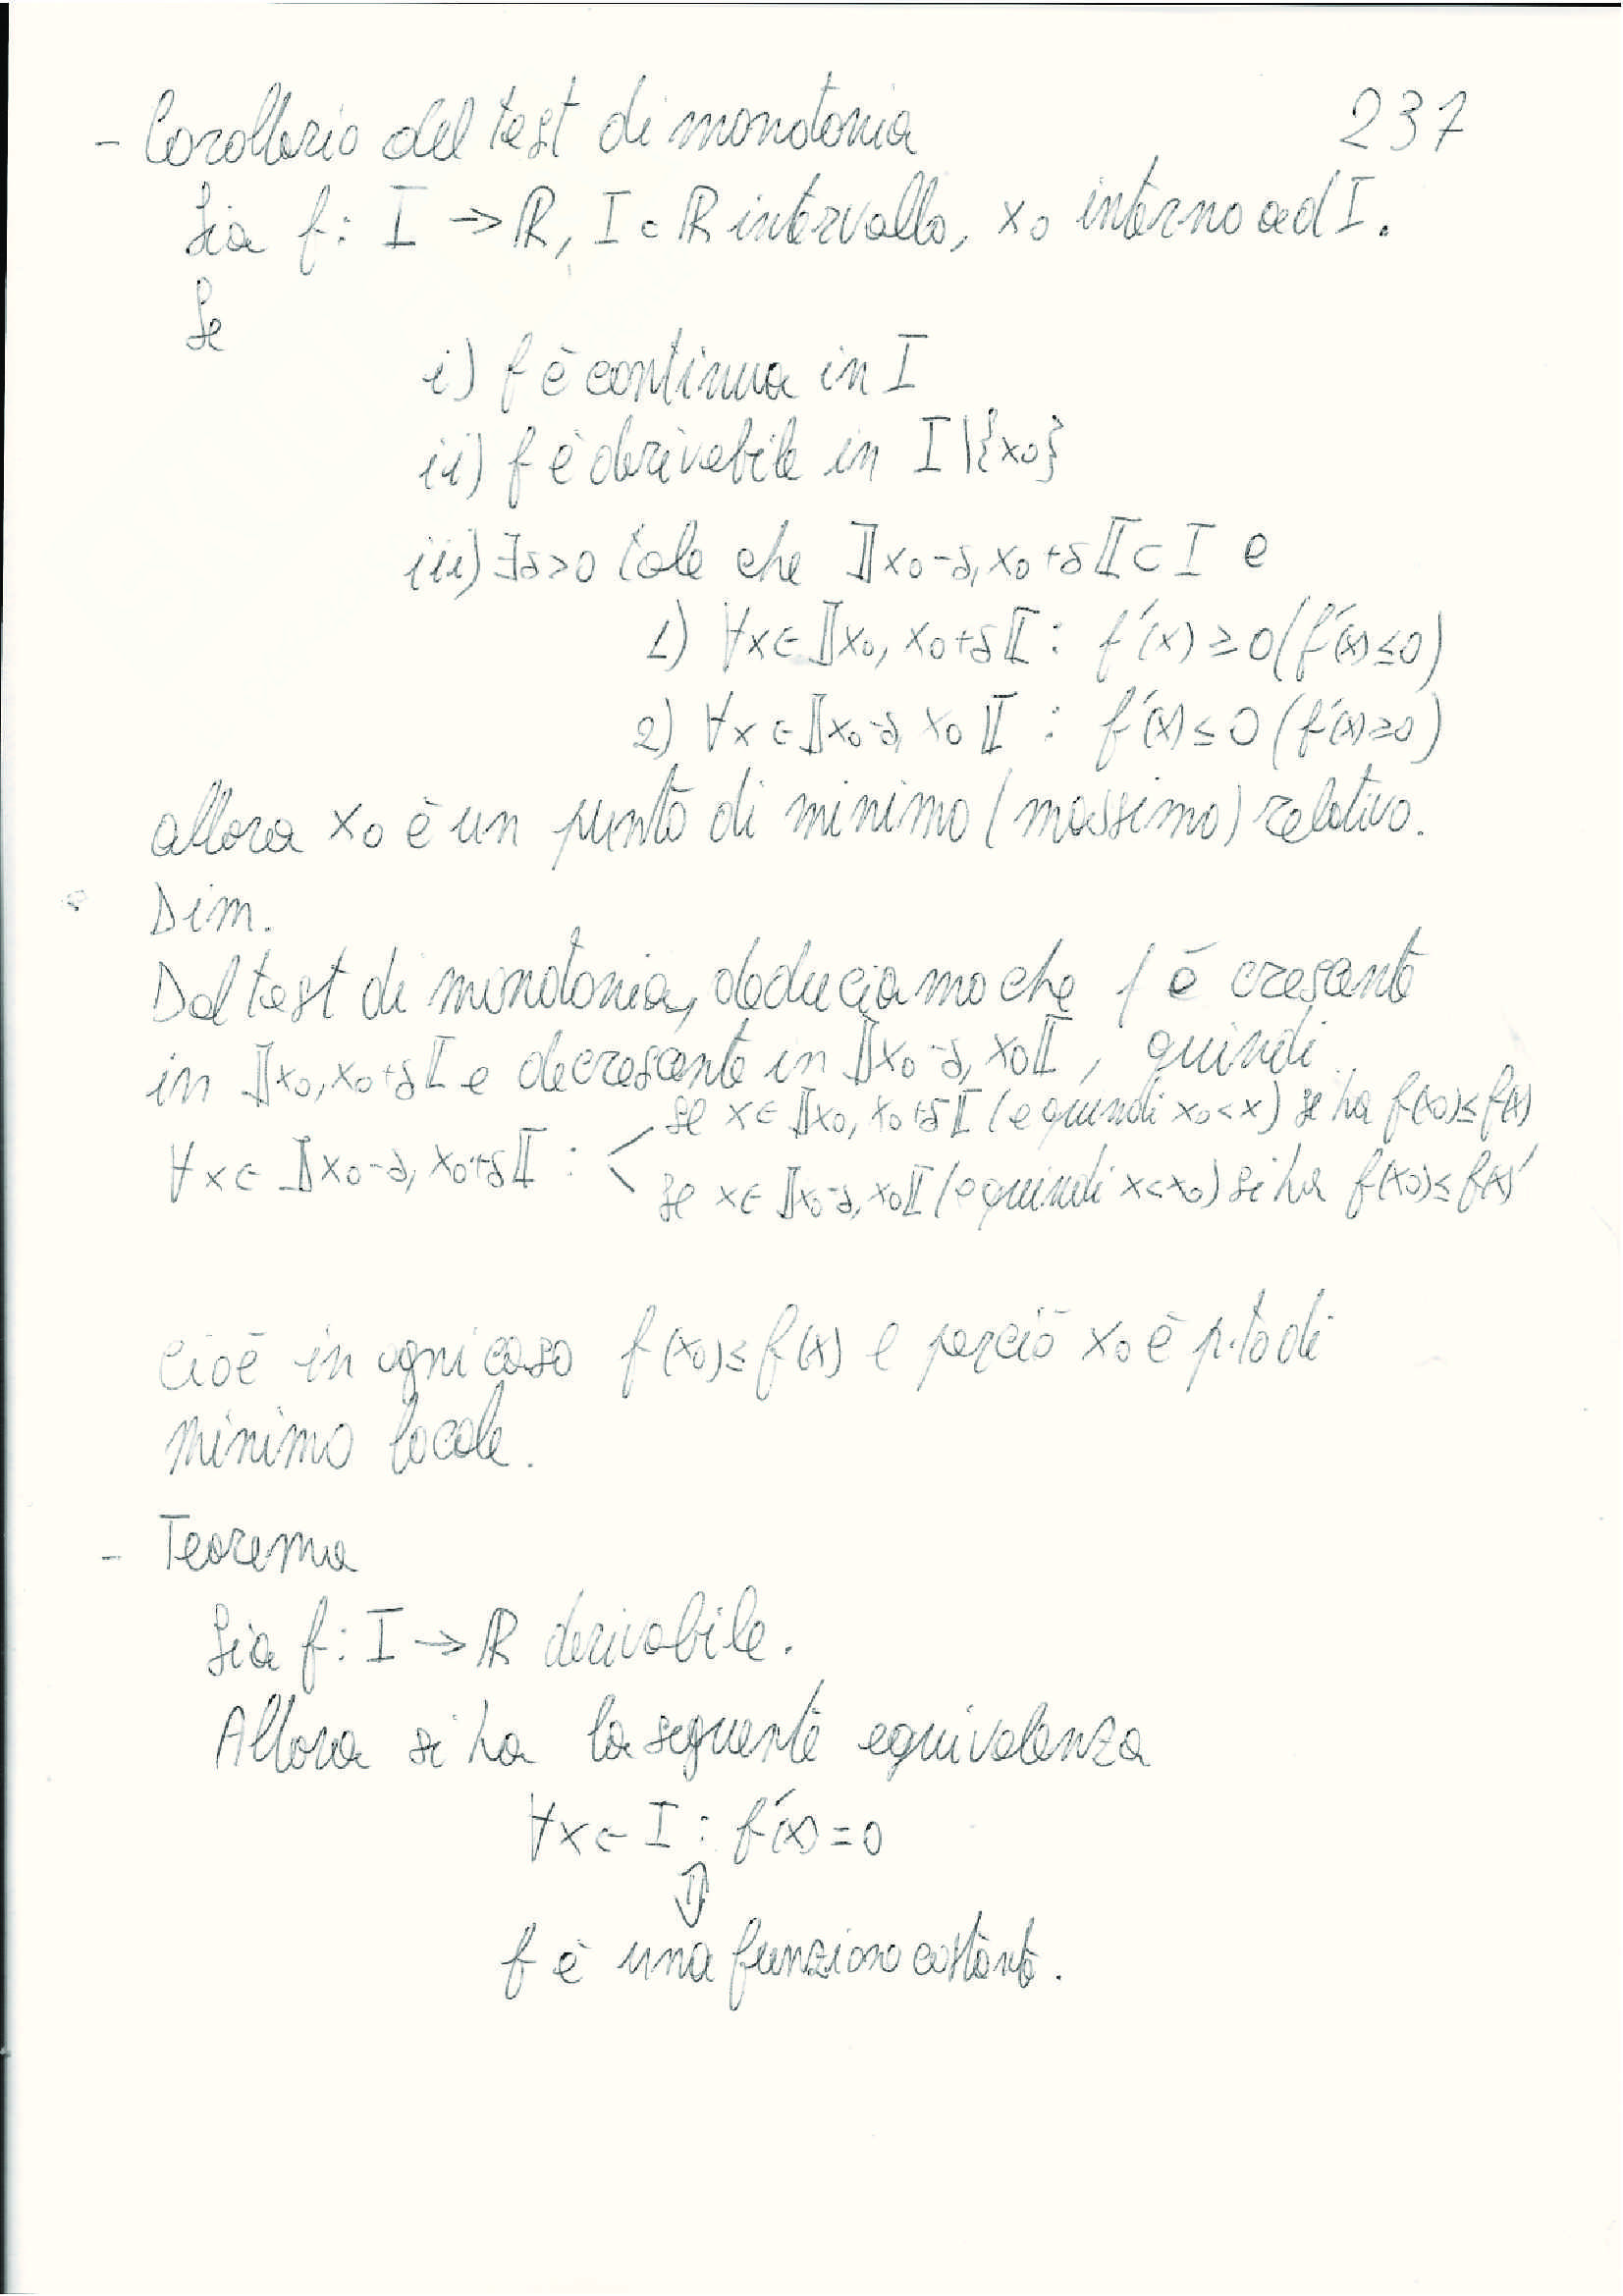 237
- Corollario del test di monotonia
Sia f: I → ℝ, I ⊂ ℝ intervallo, x₀ interno ad I.
Se
i) f è continua in I
ii) f è derivabile in I\{x₀}
iii) ∃δ>0 tale che ]x₀-δ, x₀+δ[ ⊂ I e
1) ∀x∈]x₀, x₀+δ[ : f'(x) ≥ 0 (f'(x) ≤ 0)
2) ∀x∈]x₀-δ, x₀[ : f'(x) ≤ 0 (f'(x) ≥ 0)
allora x₀ è un punto di minimo (massimo) relativo.
Dim.
Dal test di monotonia, deduciamo che f è crescente
in ]x₀, x₀+δ[ e decrescente in ]x₀-δ, x₀[, quindi
se x∈]x₀, x₀+δ[ (e quindi x₀<x) si ha f(x₀)≤f(x)
∀x∈]x₀-δ, x₀+δ[ : <
se x∈]x₀-δ, x₀[ (e quindi x<x₀) si ha f(x₀)≤f(x)
cioè in ogni caso f(x₀)≤f(x) e perciò x₀ è p.to di
minimo locale.
- Teorema
Sia f: I → ℝ derivabile.
Allora si ha la seguente equivalenza
∀x∈I : f'(x)=0
⇕
f è una funzione costante.